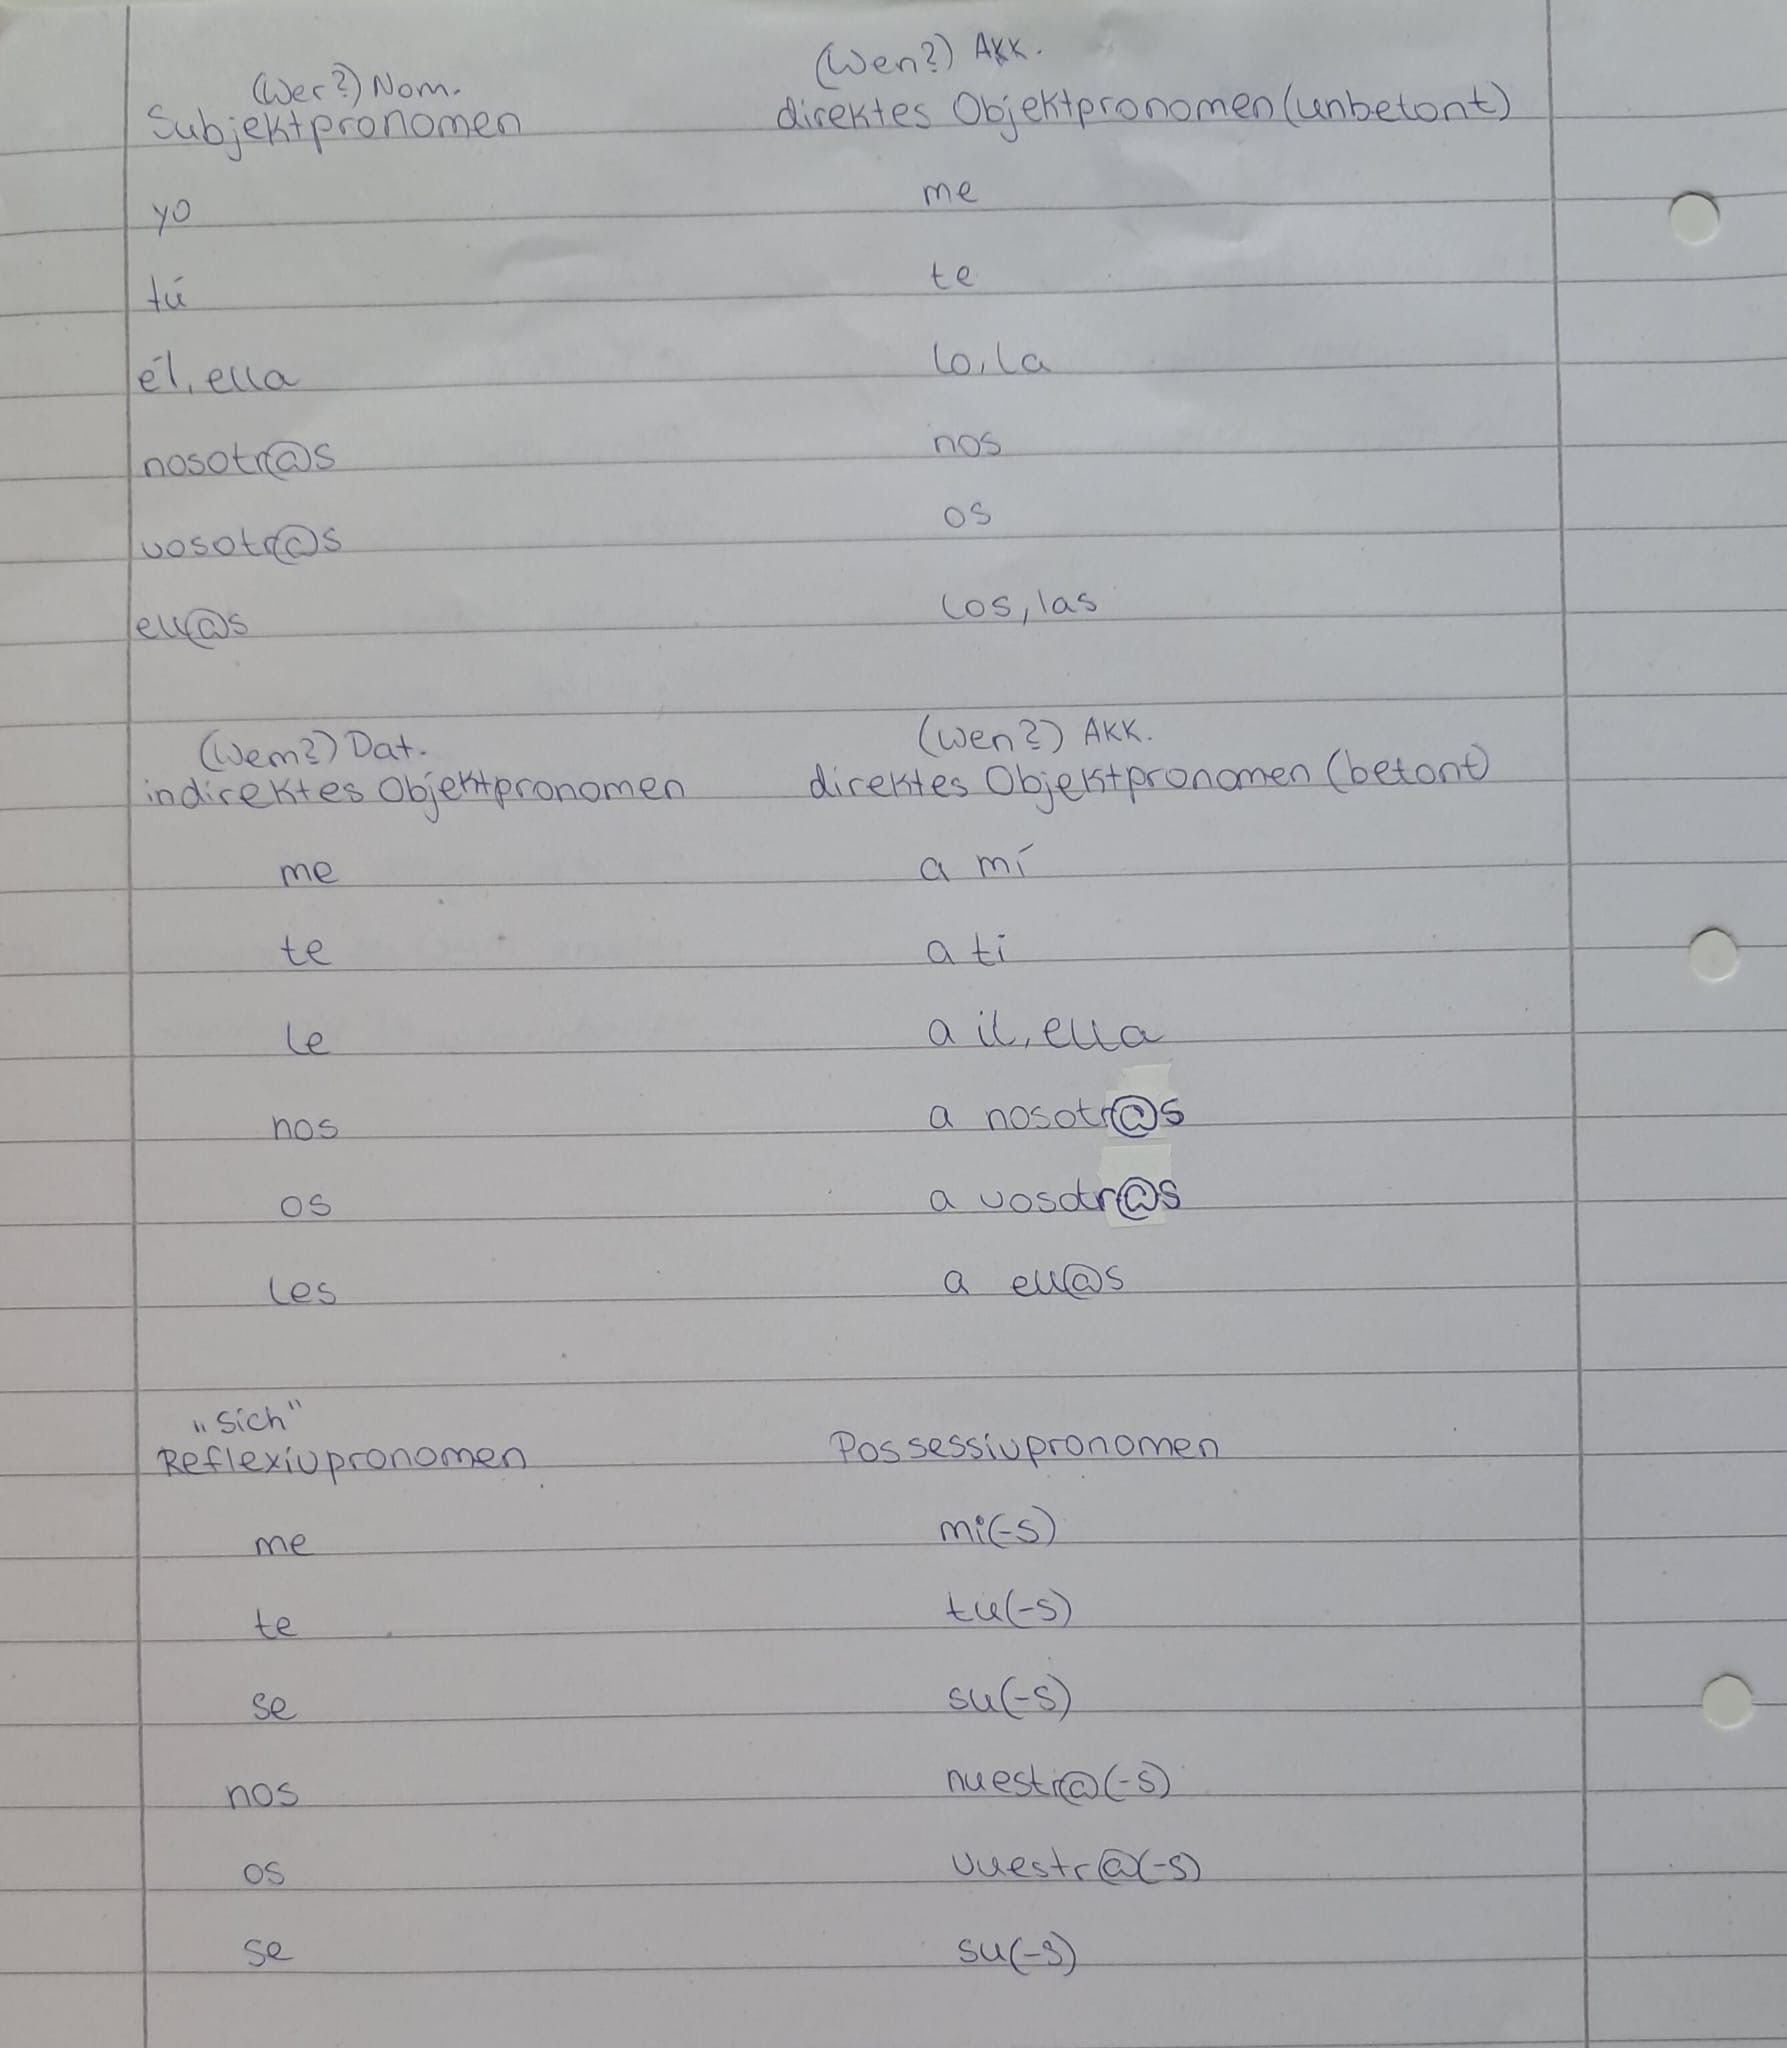 (Wer?) Nom.
Subjektpronomen
yo
tú
él, ella
nosotr@s
vosotr@s
ell@s
(Wen?) Akk.
direktes Objektpronomen (unbetont)
me
te
lo, la
nos
os
los, las
(Wem?) Dat.
indirektes Objektpronomen
me
te
le
nos
os
les
(Wen?) Akk.
direktes Objektpronomen (betont)
a mí
a ti
a il, ella
a nosotr@s
a vosotr@s
a ell@s
„sich"
Reflexivpronomen
me
te
se
nos
os
se
Possessivpronomen
mi(-s)
tu(-s)
su(-s)
nuestr@(-s)
vuestr@(-s)
su(-s)